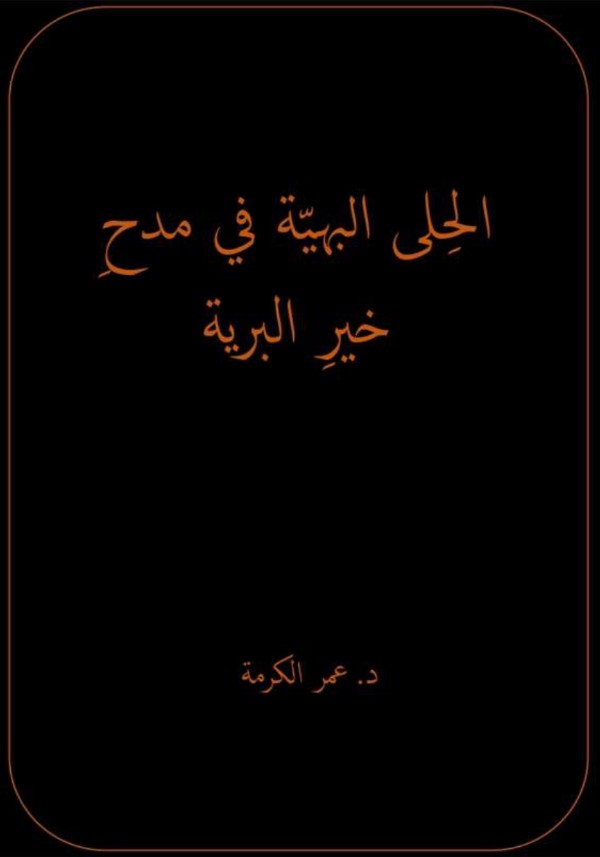 الحِلى البهيّة في مدحِ
خيرِ البرية
د. عمر الكرمة